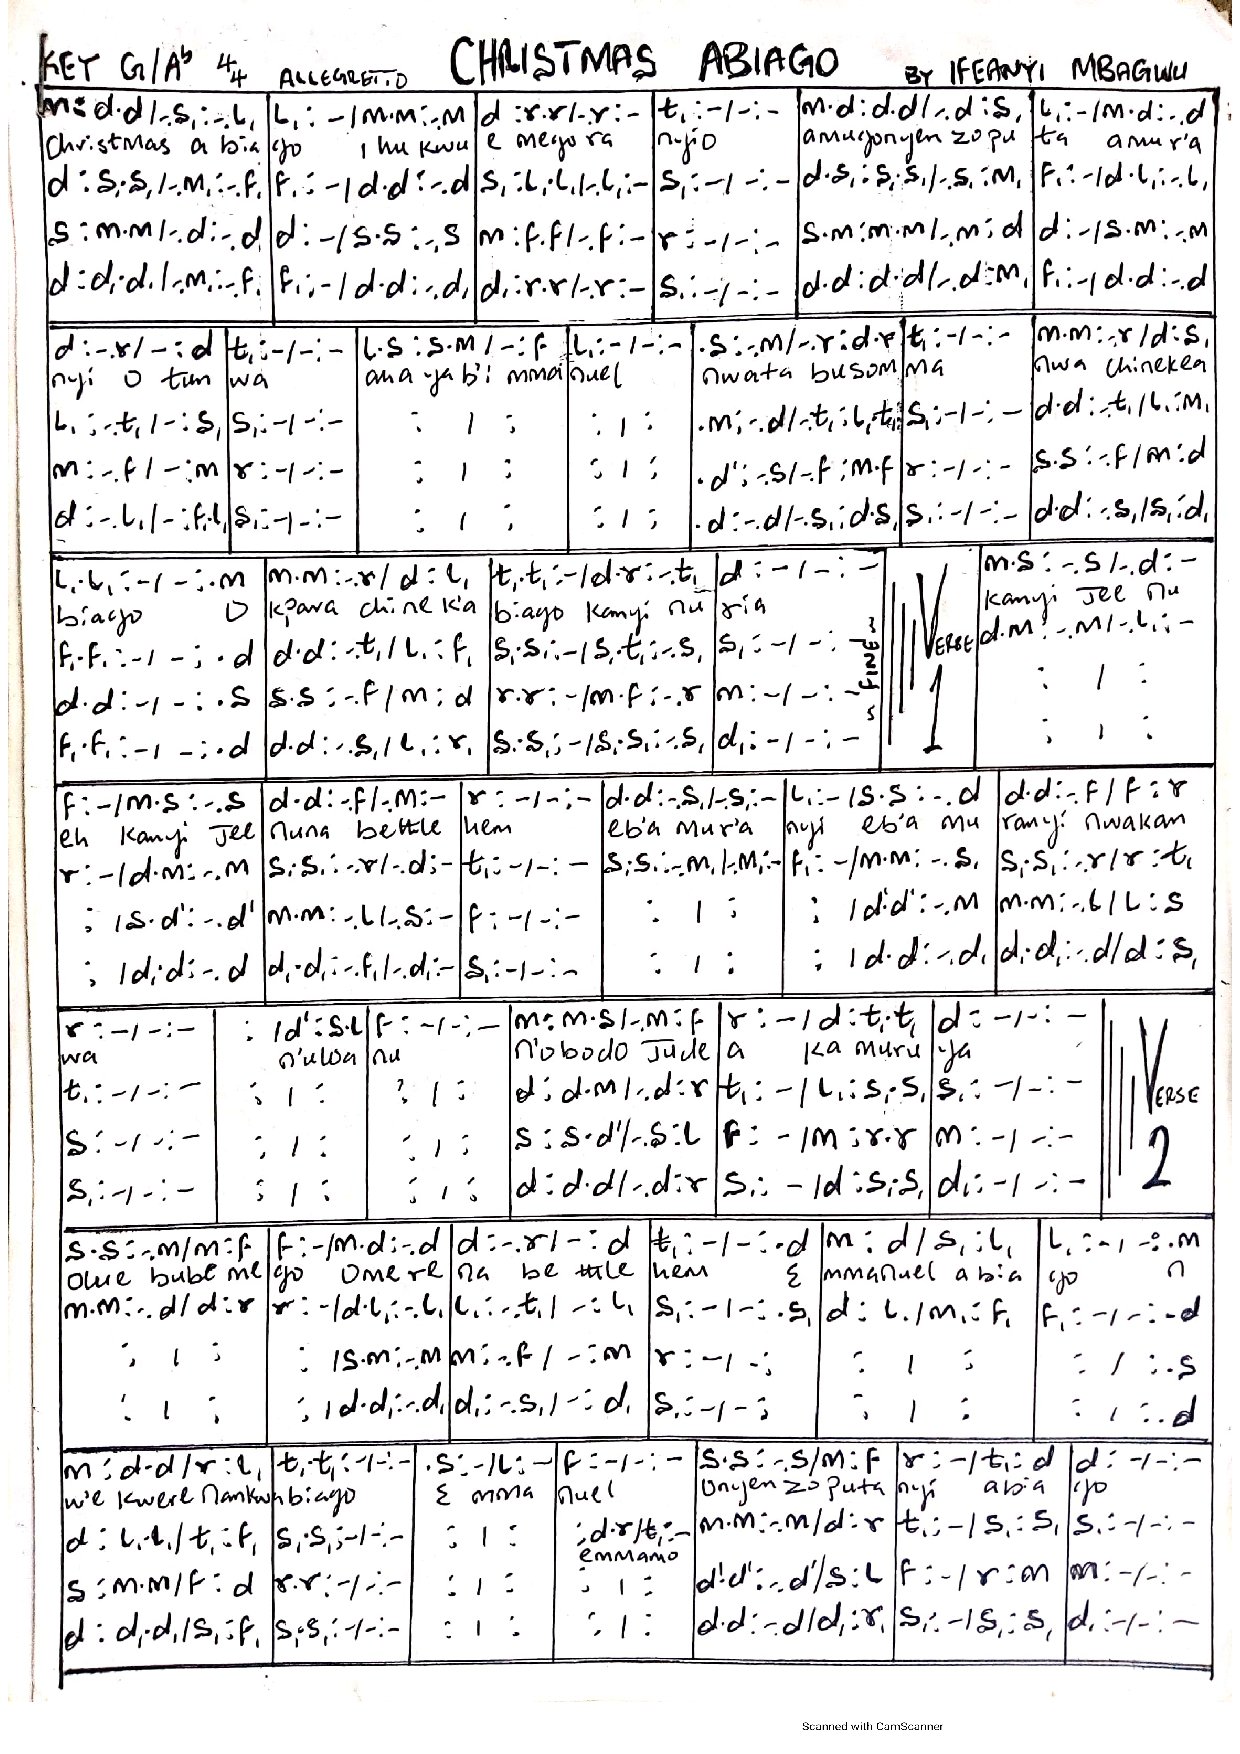 KEY G/Ab 4/4 ALLEGRETTO CHRISTMAS ABIAGO BY IFEANYI MBAGWU
m:d.d/-.s,:-.l, | l,:-/m.m:-.m | d:r.r/-.r:- | t,:-/-:- | m.d:d.d/-.d:s, | l,:-/m.d:-.d
Christmas a bia | go ihu kwu | e mego ra | nyi o | amugonyen zo pu | ta amur'a
d:s,.s,/-.m,:-.f, | f,:-/d.d:-.d | s,:l,.l,/-.l,:- | s,:-/-:- | d.s,:s,.s,/-.s,:m, | f,:-/d.l,:-.l,
s:m.m/-.d:-.d | d:-/s.s:-.s | m:f.f/-.f:- | r:-/-:- | s.m:m.m/-.m:d | d:-/s.m:-.m
d:d,.d,/-.m,:-.f, | f,:-/d.d:-.d, | d,:r.r/-.r:- | s,:-/-:- | d.d:d.d/-.d:m, | f,:-/d.d:-.d
d:-.r/-:d | t,:-/-:- | l.s:s.m/-:f | l,:-/-:- | .s:-.m/-.r:d.r | t,:-/-:- | m.m:-.r/d:s,
nyi O tun | wa | ana ya b'i mma | nuel | nwata busom | ma | nwa chinekea
l,:-.t,/-:s, | s,:-/-:- | : / : | : / : | .m:-.d/-.t,:l,.t, | s,:-/-:- | d.d:-.t,/l,:m,
m:-.f/-:m | r:-/-:- | : / : | : / : | .d':-.s/-.f:m.f | r:-/-:- | s.s:-.f/m:d
d:-.l,/-:f,.l, | s,:-/-:- | : / : | : / : | .d:-.d/-.s,:d.s, | s,:-/-:- | d.d:-.s,/s,:d,
l,.l,:-/-:.m | m.m:-.r/d:l, | t,.t,:-/d.r:-.t, | d:-/-:- | VERSE 1 | m.s:-.s/-.d:-
biago O | kpara chine k'a | biago kanyi nu | ria | kanyi Jee nu
f,.f,:-/-:.d | d.d:-.t,/l,:f, | s,.s,:-/s,.t,:-.s, | s,:-/-:- | ~ FINE ~ | d.m:-.m/-.l,:-
d.d:-/-:.s | s.s:-.f/m:d | r.r:-/m.f:-.r | m:-/-:- | : / :
f,.f,:-/-:.d | d.d:-.s,/l,:r, | s,.s,:-/s,.s,:-.s, | d,:-/-:- | : / :
f:-/m.s:-.s | d.d:-.f/-.m:- | r:-/-:- | d.d:-.s,/-.s,:- | l,:-/s.s:-.d | d.d:-.f/f:r
eh kanyi Jee | nuna bettle | hem | eb'a mur'a | nyi eb'a mu | ranyi nwakan
r:-/d.m:-.m | s,.s,:-.r/-.d:- | t,:-/-:- | s,.s,:-.m,/-.m,:- | f,:-/m.m:-.s, | s,.s,:-.r/r:t,
: /s.d':-.d' | m.m:-.l/-.s:- | f:-/-:- | : / : | : /d'.d':-.m | m.m:-.l/l:s
: /d,.d:-.d | d,.d,:-.f,/-.d,:- | s,:-/-:- | : / : | : /d.d:-.d, | d,.d,:-.d/d:s,
r:-/-:- | : /d':s.l | f:-/-:- | m:m.s/-.m:f | r:-/d:t,.t, | d:-/-:- | VERSE 2
wa | n'ulwa | nu | n'obodo Jude | a ka muru | ya
t,:-/-:- | : / : | : / : | d:d.m/-.d:r | t,:-/l,:s,.s, | s,:-/-:-
s:-/-:- | : / : | : / : | s:s.d'/-.s:l | f:-/m:r.r | m:-/-:-
s,:-/-:- | : / : | : / : | d:d.d/-.d:r | s,:-/d:s,.s, | d,:-/-:-
s.s:-.m/m:f | f:-/m.d:-.d | d:-.r/-:d | t,:-/-:.d | m:d/s,:l, | l,:-/-:.m
Olue bube me | go Omere | na be ttle | hem E | mmanuel a bia | go n
m.m:-.d/d:r | r:-/d.l,:-.l, | l,:-.t,/-:l, | s,:-/-:.s, | d:l,/m,:f, | f,:-/-:-d
: / : | : /s.m:-.m | m:-.f/-:m | r:-/-: | : / : | : /:.s
: / : | : /d.d,:-.d, | d,:-.s,/-:d, | s,:-/-: | : / : | : /:.d
m:d.d/r:l, | t,.t,:-/-:- | .s:-/l:- | f:-/-:- | s.s:-.s/m:f | r:-/t,:d | d:-/-:-
w'e kwere nankwa | biago | E mma | nuel | Onyen zo puta | nyi abia | go
d:l,.l,/t,:f, | s,.s,:-/-:- | : / : | :d.r/t,:- | m.m:-.m/d:r | t,:-/s,:s, | s,:-/-:-
emmamo
s:m.m/f:d | r.r:-/-:- | : / : | : / : | d'.d':-.d'/s:l | f:-/r:m | m:-/-:-
d:d,.d,/s,:f, | s,.s,:-/-:- | : / : | : / : | d.d:-.d/d,:r, | s,:-/s,:s, | d,:-/-:-
Scanned with CamScanner